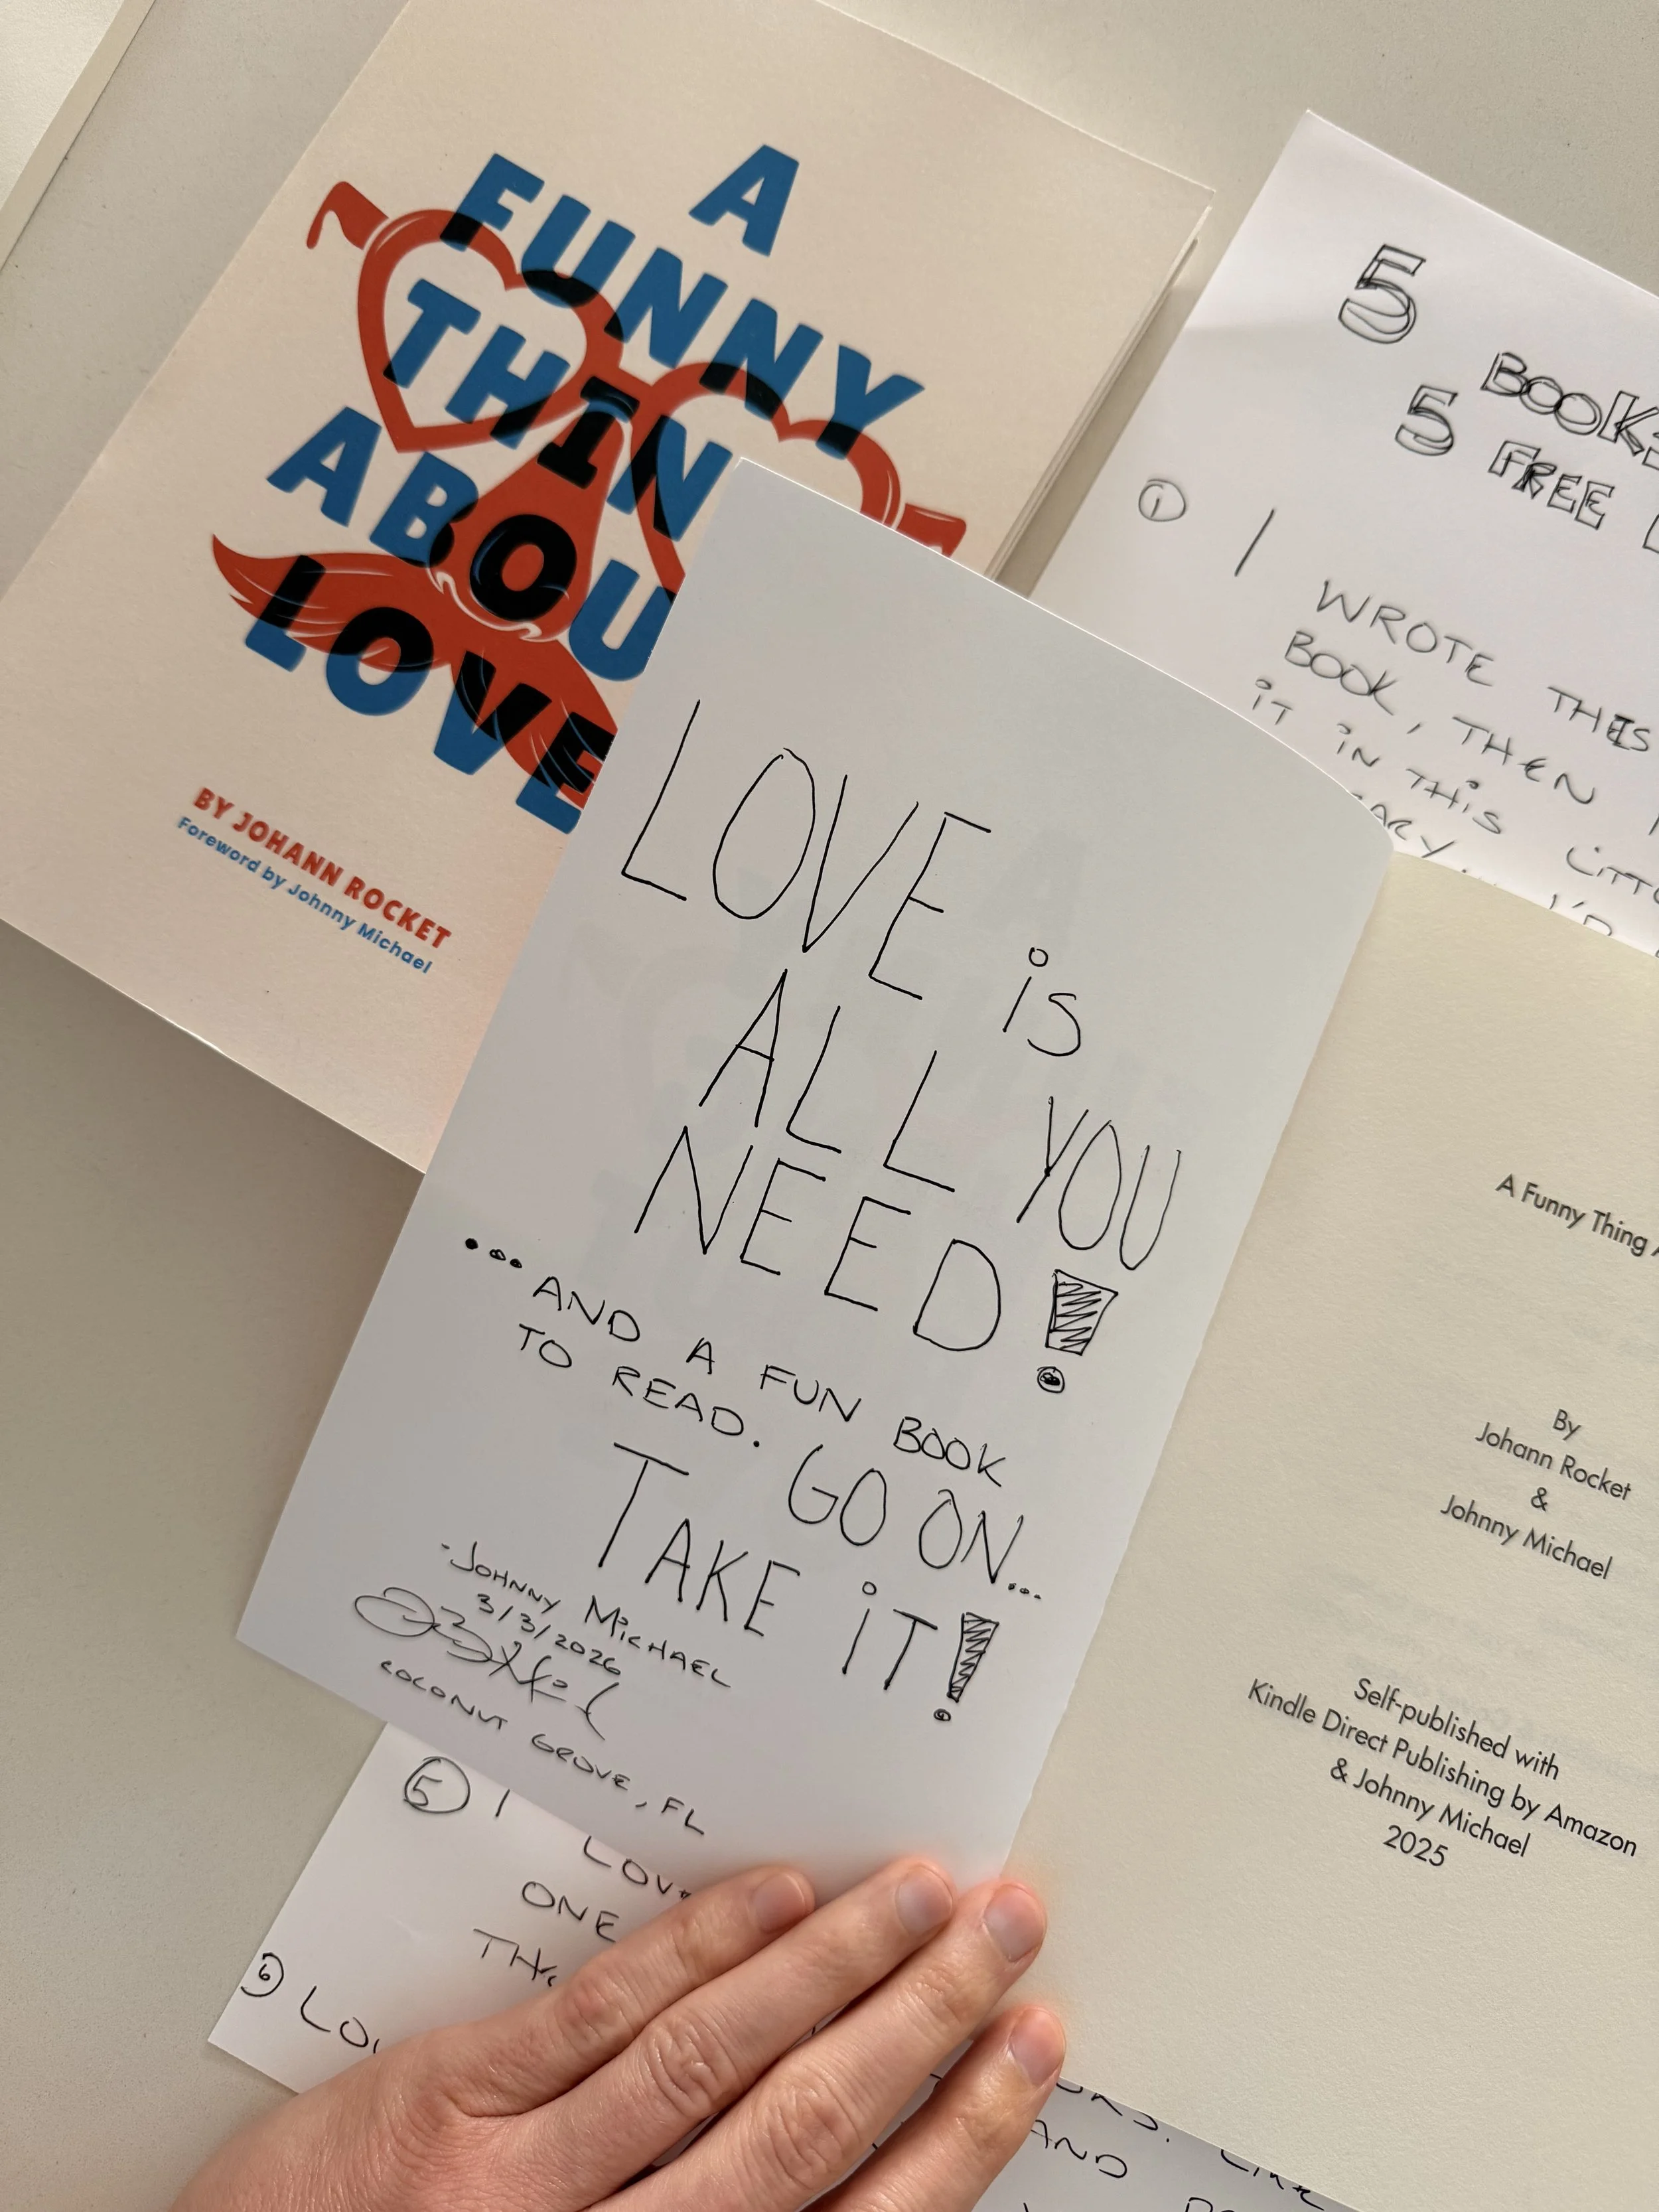 A
FUNNY
THIN
ABOU
LOVE
BY JOHANN ROCKET
Foreword by Johnny Michael
5 BOOKS
5 FREE
1 I WROTE THIS
BOOK, THEN
IT IN THIS
LOVE is
ALL YOU
NEED!
...AND A FUN BOOK
TO READ. GO ON...
TAKE iT!
-JOHNNY MiCHAEL
3/3/2026
COCONUT GROVE, FL
A Funny Thing
By
Johann Rocket
&
Johnny Michael
Self-published with
Kindle Direct Publishing by Amazon
& Johnny Michael
2025
5 I
ONE
6
AND